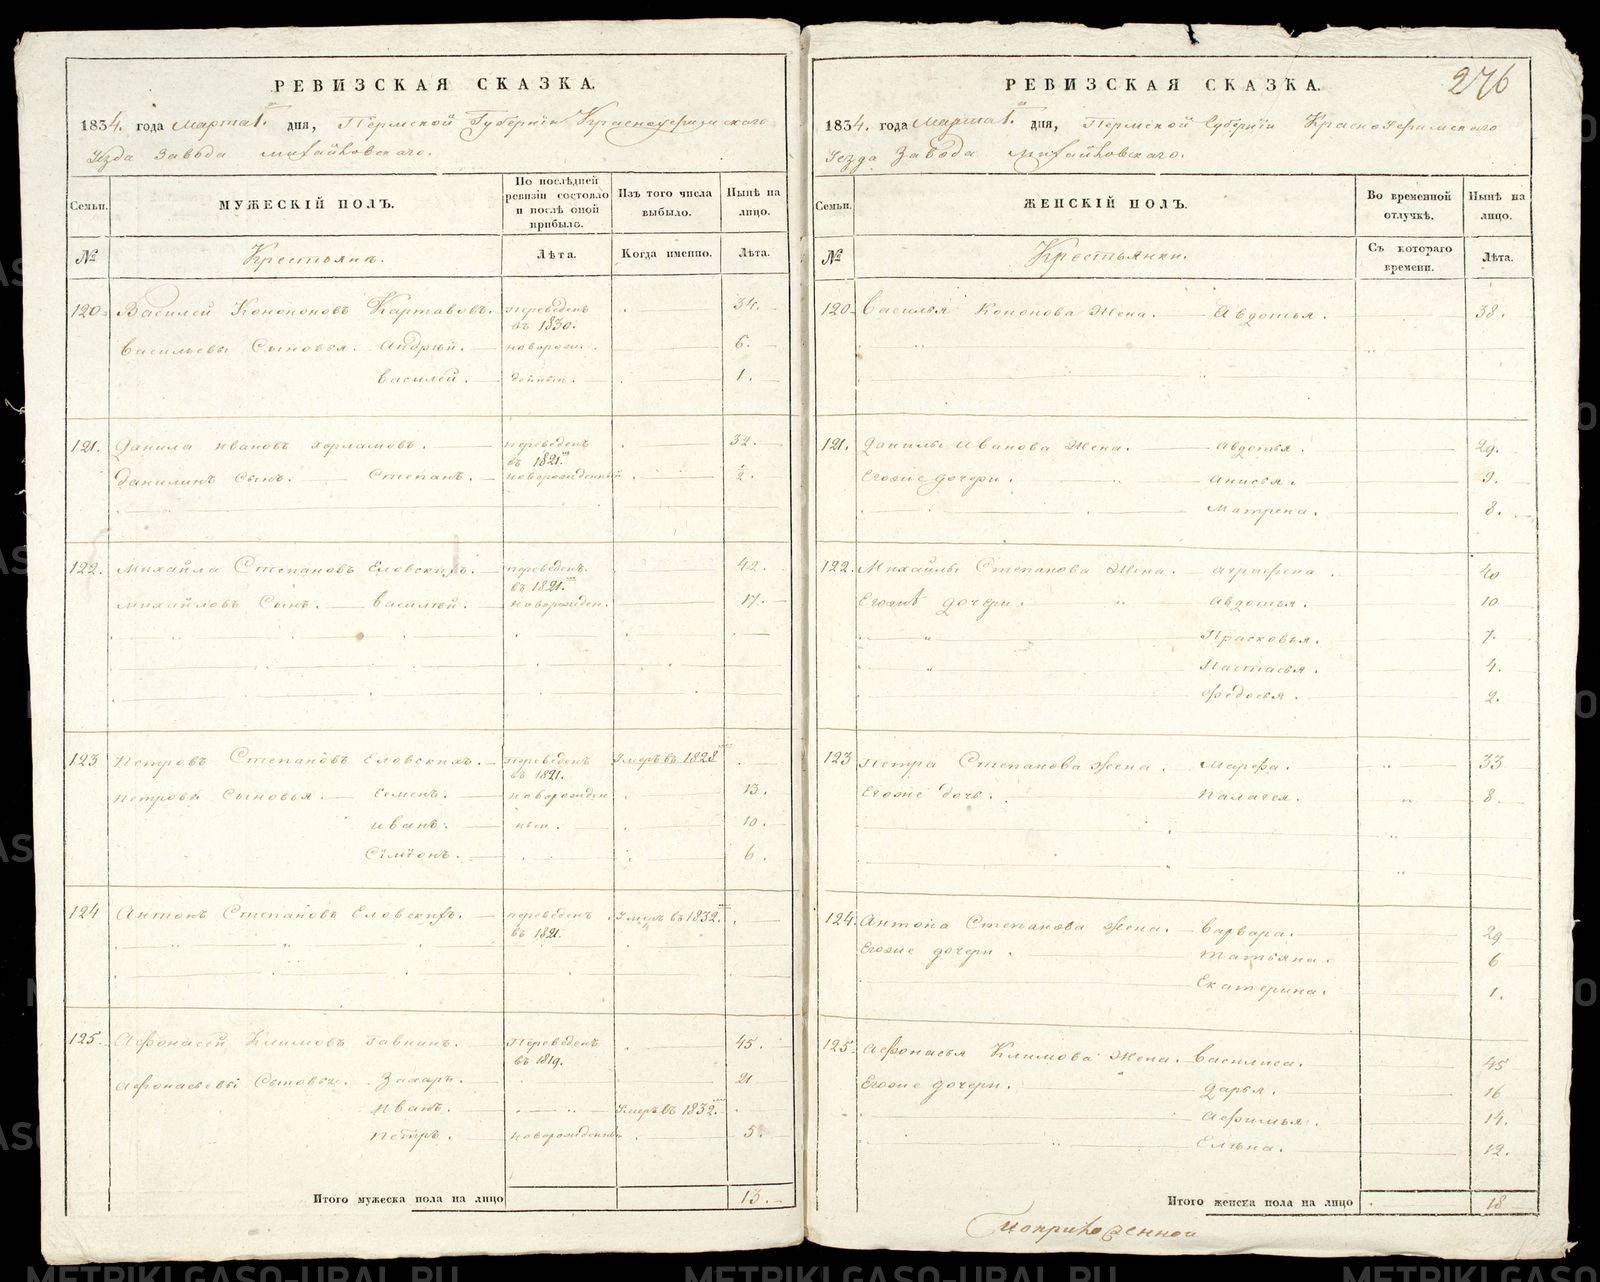 РЕВИЗСКАЯ СКАЗКА.
1834. года марта 1. дня, Пермской Губернїи Красноуфимскаго
Уезда Завода Михайловскаго.
Семьи. МУЖЕСКІЙ ПОЛЪ. По послѣдней ревизіи состояло и послѣ оной прибыло. Изъ того числа выбыло. Нынѣ на лицо.
№ Крестьянъ. Лѣта. Когда именно. Лѣта.
120. Василей Кононовъ Картавовъ. переведенъ въ 1830. 34.
Васильевы Сыновья. Андрѣй. новорож- 6.
Василей. денныи. 1.
121. Данила Ивановъ Харламовъ. переведенъ въ 1821. 32.
Данилинъ Сынъ. Степанъ. новорожденный ½.
122. Михайла Степановъ Еловскихъ. переведенъ въ 1821. 42.
Михайловъ Сынъ. Василей. новорожден. 17.
123 Петровъ Степановъ Еловскихъ. переведенъ въ 1821. Умеръ въ 1828
Петровы Сыновья. Семенъ. новорожден 13.
Иванъ. ныи. 10.
Сімїонъ. 6.
124 Антонъ Степановъ Еловскихъ. переведен въ 1821. Умеръ въ 1832.
125. Афонасей Климовъ Гавнинъ. Переведенъ въ 1819. 45.
Афонасьевы Сыновья. Захаръ. 21
Иванъ. Умеръ въ 1832.
Петръ. новорожденныи 5.
Итого мужеска пола на лицо 13.
РЕВИЗСКАЯ СКАЗКА. 276
1834. года марта 1. дня, Пермской Губернїи Красноуфимскаго
Уезда Завода Михайловскаго.
Семьи. ЖЕНСКІЙ ПОЛЪ. Во временной отлучкѣ. Нынѣ на лицо.
№ Крестьянки. Съ котораго времени. Лѣта.
120. Василья Кононова Жена. Авдотья. 38.
121. Данилы Иванова Жена. Авдотья. 29.
Егоже дочери. Анисья. 9.
Матрена. 8.
122. Михайлы Степанова Жена. Аграфена. 40
Егожѣ дочери. Авдотья. 10
Прасковья. 7.
Настасья. 4.
Федосья. 2.
123 Петра Степанова Жена. Марфа. 33
Егоже дочь. Палагея. 8.
124. Антона Степанова Жена. Варвара. 29
Егоже дочери. Татьяна. 6
Екатерина. 1.
125. Афонасья Климова Жена. Василиса. 45
Егоже дочери. Дарья. 16
Афимья. 14.
Елѣна. 12.
Итого женска пола на лицо 18
METRIKI.GASO-URAL.RU